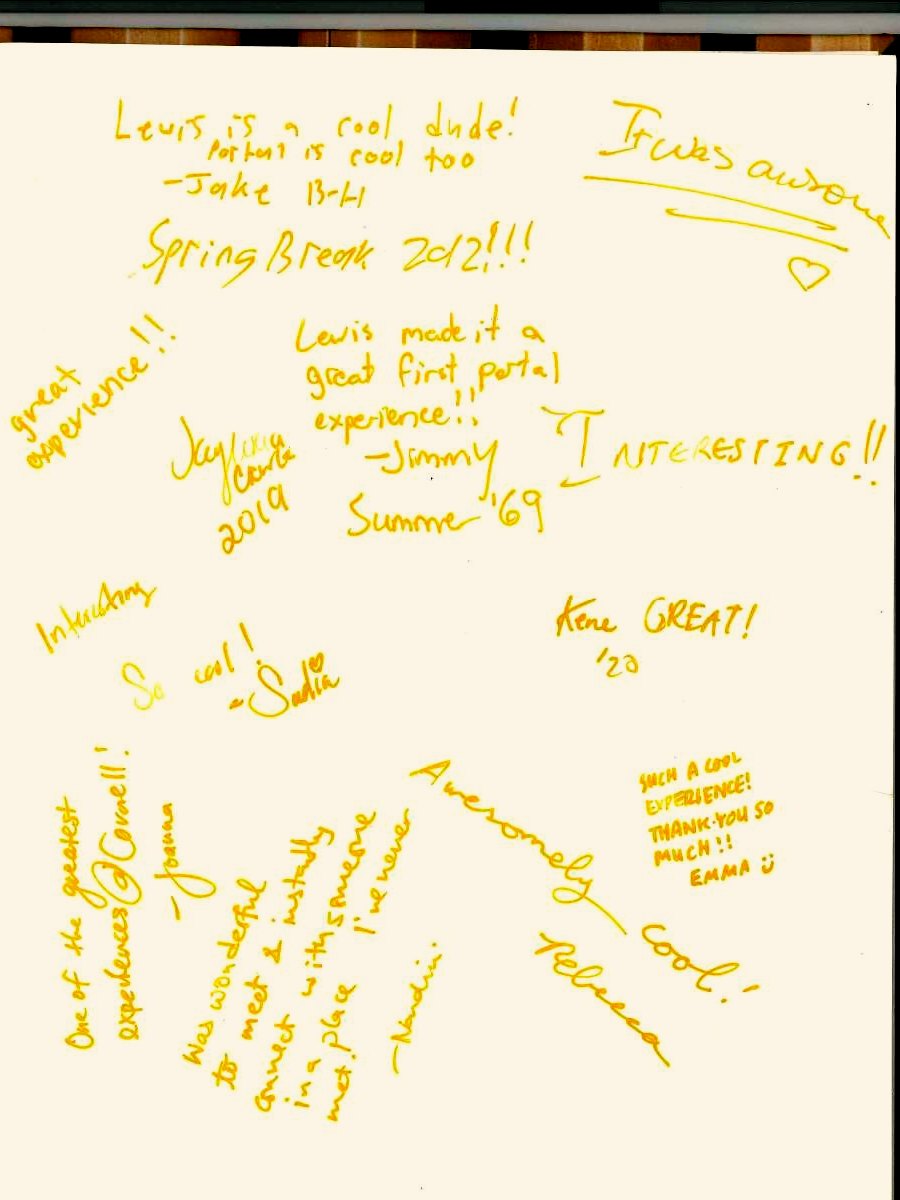 Lewis is a cool dude!
Portal is cool too
-Jake B-H
It was awsome
Spring Break 2012!!!
great
experience!!
Lewis made it a
great first portal
experience!!
-Jimmy
Summer '69
2019
INTERESTING!!
Interesting
So cool!
-Sadia
Kene GREAT!
'20
One of the greatest
experiences @ Cornell!
-Joanna
Was wonderful
to meet & instantly
connect with someone
in a place I've never
met!
-Nandini.
Awesomely cool!
Rebecca
SUCH A COOL
EXPERIENCE!
THANK-YOU SO
MUCH!!
EMMA